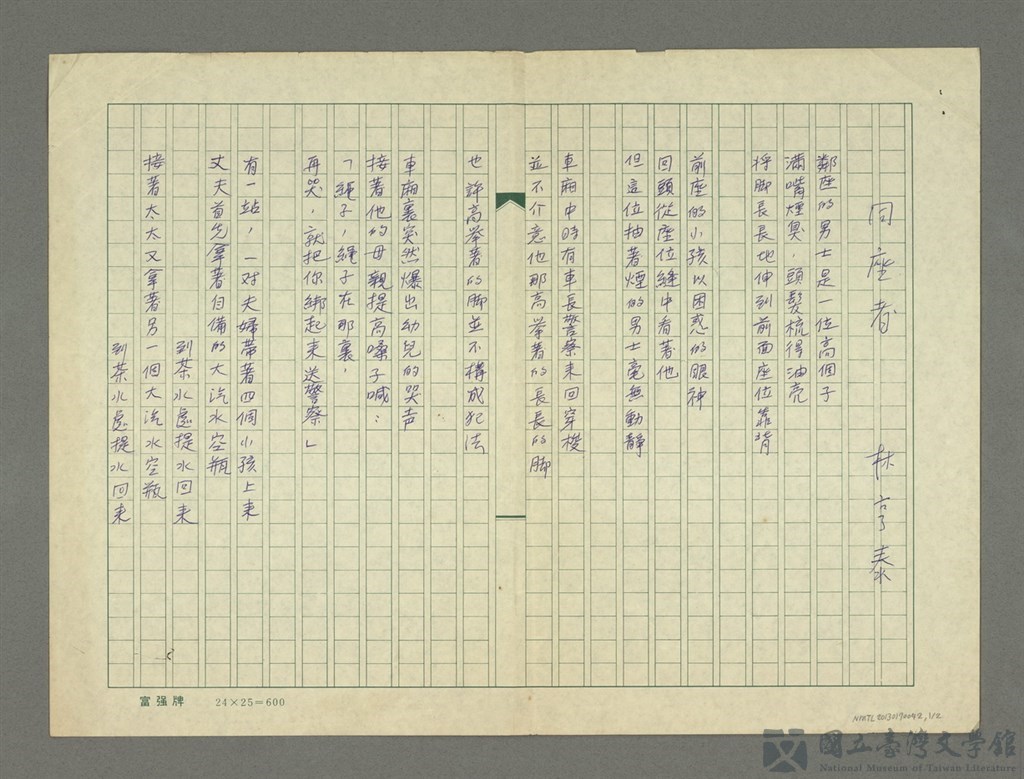 同座者
林亨泰
鄰座的男士是一位高個子
滿嘴煙臭，頭髮梳得油亮
將脚長長地伸到前面座位靠背
前座的小孩以困惑的眼神
回頭從座位縫中看著他
但這位抽著煙的男士毫無動靜
車廂中時有車長警察来回穿梭
並不介意他那高举著的長長的脚
也許高举著的脚並不構成犯法
車廂裏突然爆出幼兒的哭声
接著他的母親提高嗓子喊：
「繩子，繩子在那裏，
再哭，就把你綁起来送警察」
有一站，一对夫婦帶著四個小孩上来
丈夫首先拿著自備的大汽水空瓶
到茶水處提水回来
接著太太又拿著另一個大汽水空瓶
到茶水處提水回来
富强牌 24×25=600
NMTL20130190042, 1/2
國立臺灣文學館
National Museum of Taiwan Literature